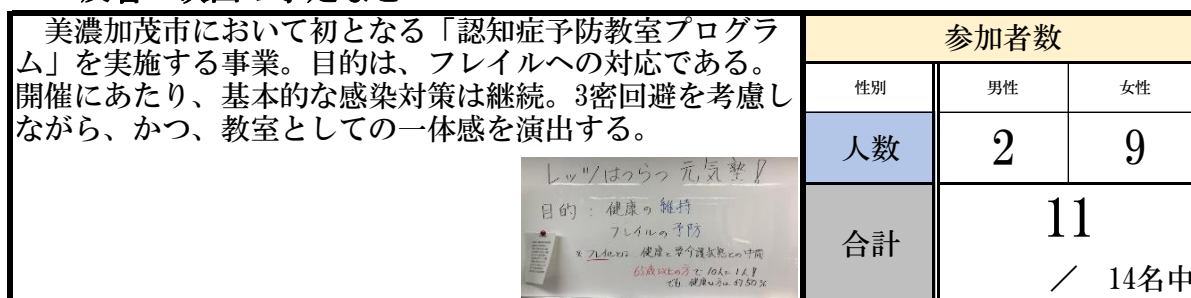 美濃加茂市において初となる「認知症予防教室プログラ
ム」を実施する事業。目的は、フレイルへの対応である。
開催にあたり、基本的な感染対策は継続。3密回避を考慮し
ながら、かつ、教室としての一体感を演出する。
レッツはつらつ 元気塾!
目的: 健康の維持
フレイルの予防
※フレイルとは 健康と要介護状態との中間
65歳以上の方で10人に1人!
でも、健康な方は約50%
参加者数
性別 男性 女性
人数 2 9
合計 11
/ 14名中